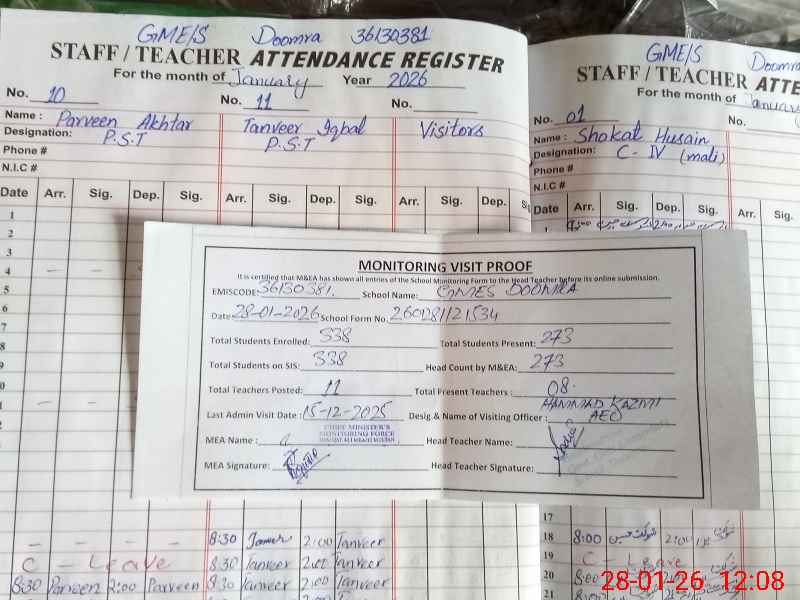 GMES Doomra 36130381
STAFF / TEACHER ATTENDANCE REGISTER
For the month of January Year 2026
No. 10 No. 11 No.
Name : Parveen Akhtar Tanveer Iqbal Visitors
Designation: P.S.T P.S.T
Phone #
N.I.C #
Date Arr. Sig. Dep. Sig. Arr. Sig. Dep. Sig. Arr. Sig. Dep.
1
2
3
4 — —
5
GMES Doomra
STAFF / TEACHER ATTE
For the month of January
No. 01 No.
Name : Shokat Husain
Designation: C-IV (mali)
Phone #
N.I.C #
Date Arr. Sig. Dep. Sig. Arr. Sig.
MONITORING VISIT PROOF
It is certified that M&EA has shown all entries of the School Monitoring Form to the Head Teacher before its online submission.
EMISCODE: 36130381. School Name: GMES DOOMRA
Date 28-01-2026 School Form No. 2601281121534
Total Students Enrolled: 338 Total Students Present: 273
Total Students on SIS: 338 Head Count by M&EA: 273
Total Teachers Posted: 11 Total Present Teachers : 08.
Last Admin Visit Date : 15-12-2025 Desig & Name of Visiting Officer : HAMMAD KAZMI AEO
CHIEF MINISTER'S
MONITORING FORCE
MEA Name : Head Teacher Name:
MEA Signature: Head Teacher Signature:
— — — — 8:30 Tanveer 2:00 Tanveer
C - Leave 8:30 Tanveer 2:00 Tanveer
8:30 Parveen 2:00 Parveen 8:30 Tanveer 2:00 Tanveer
17
18 8:00 شوکت حسین 2:00
19 C - Leave
20 8:00
21
28-01-26 12:08